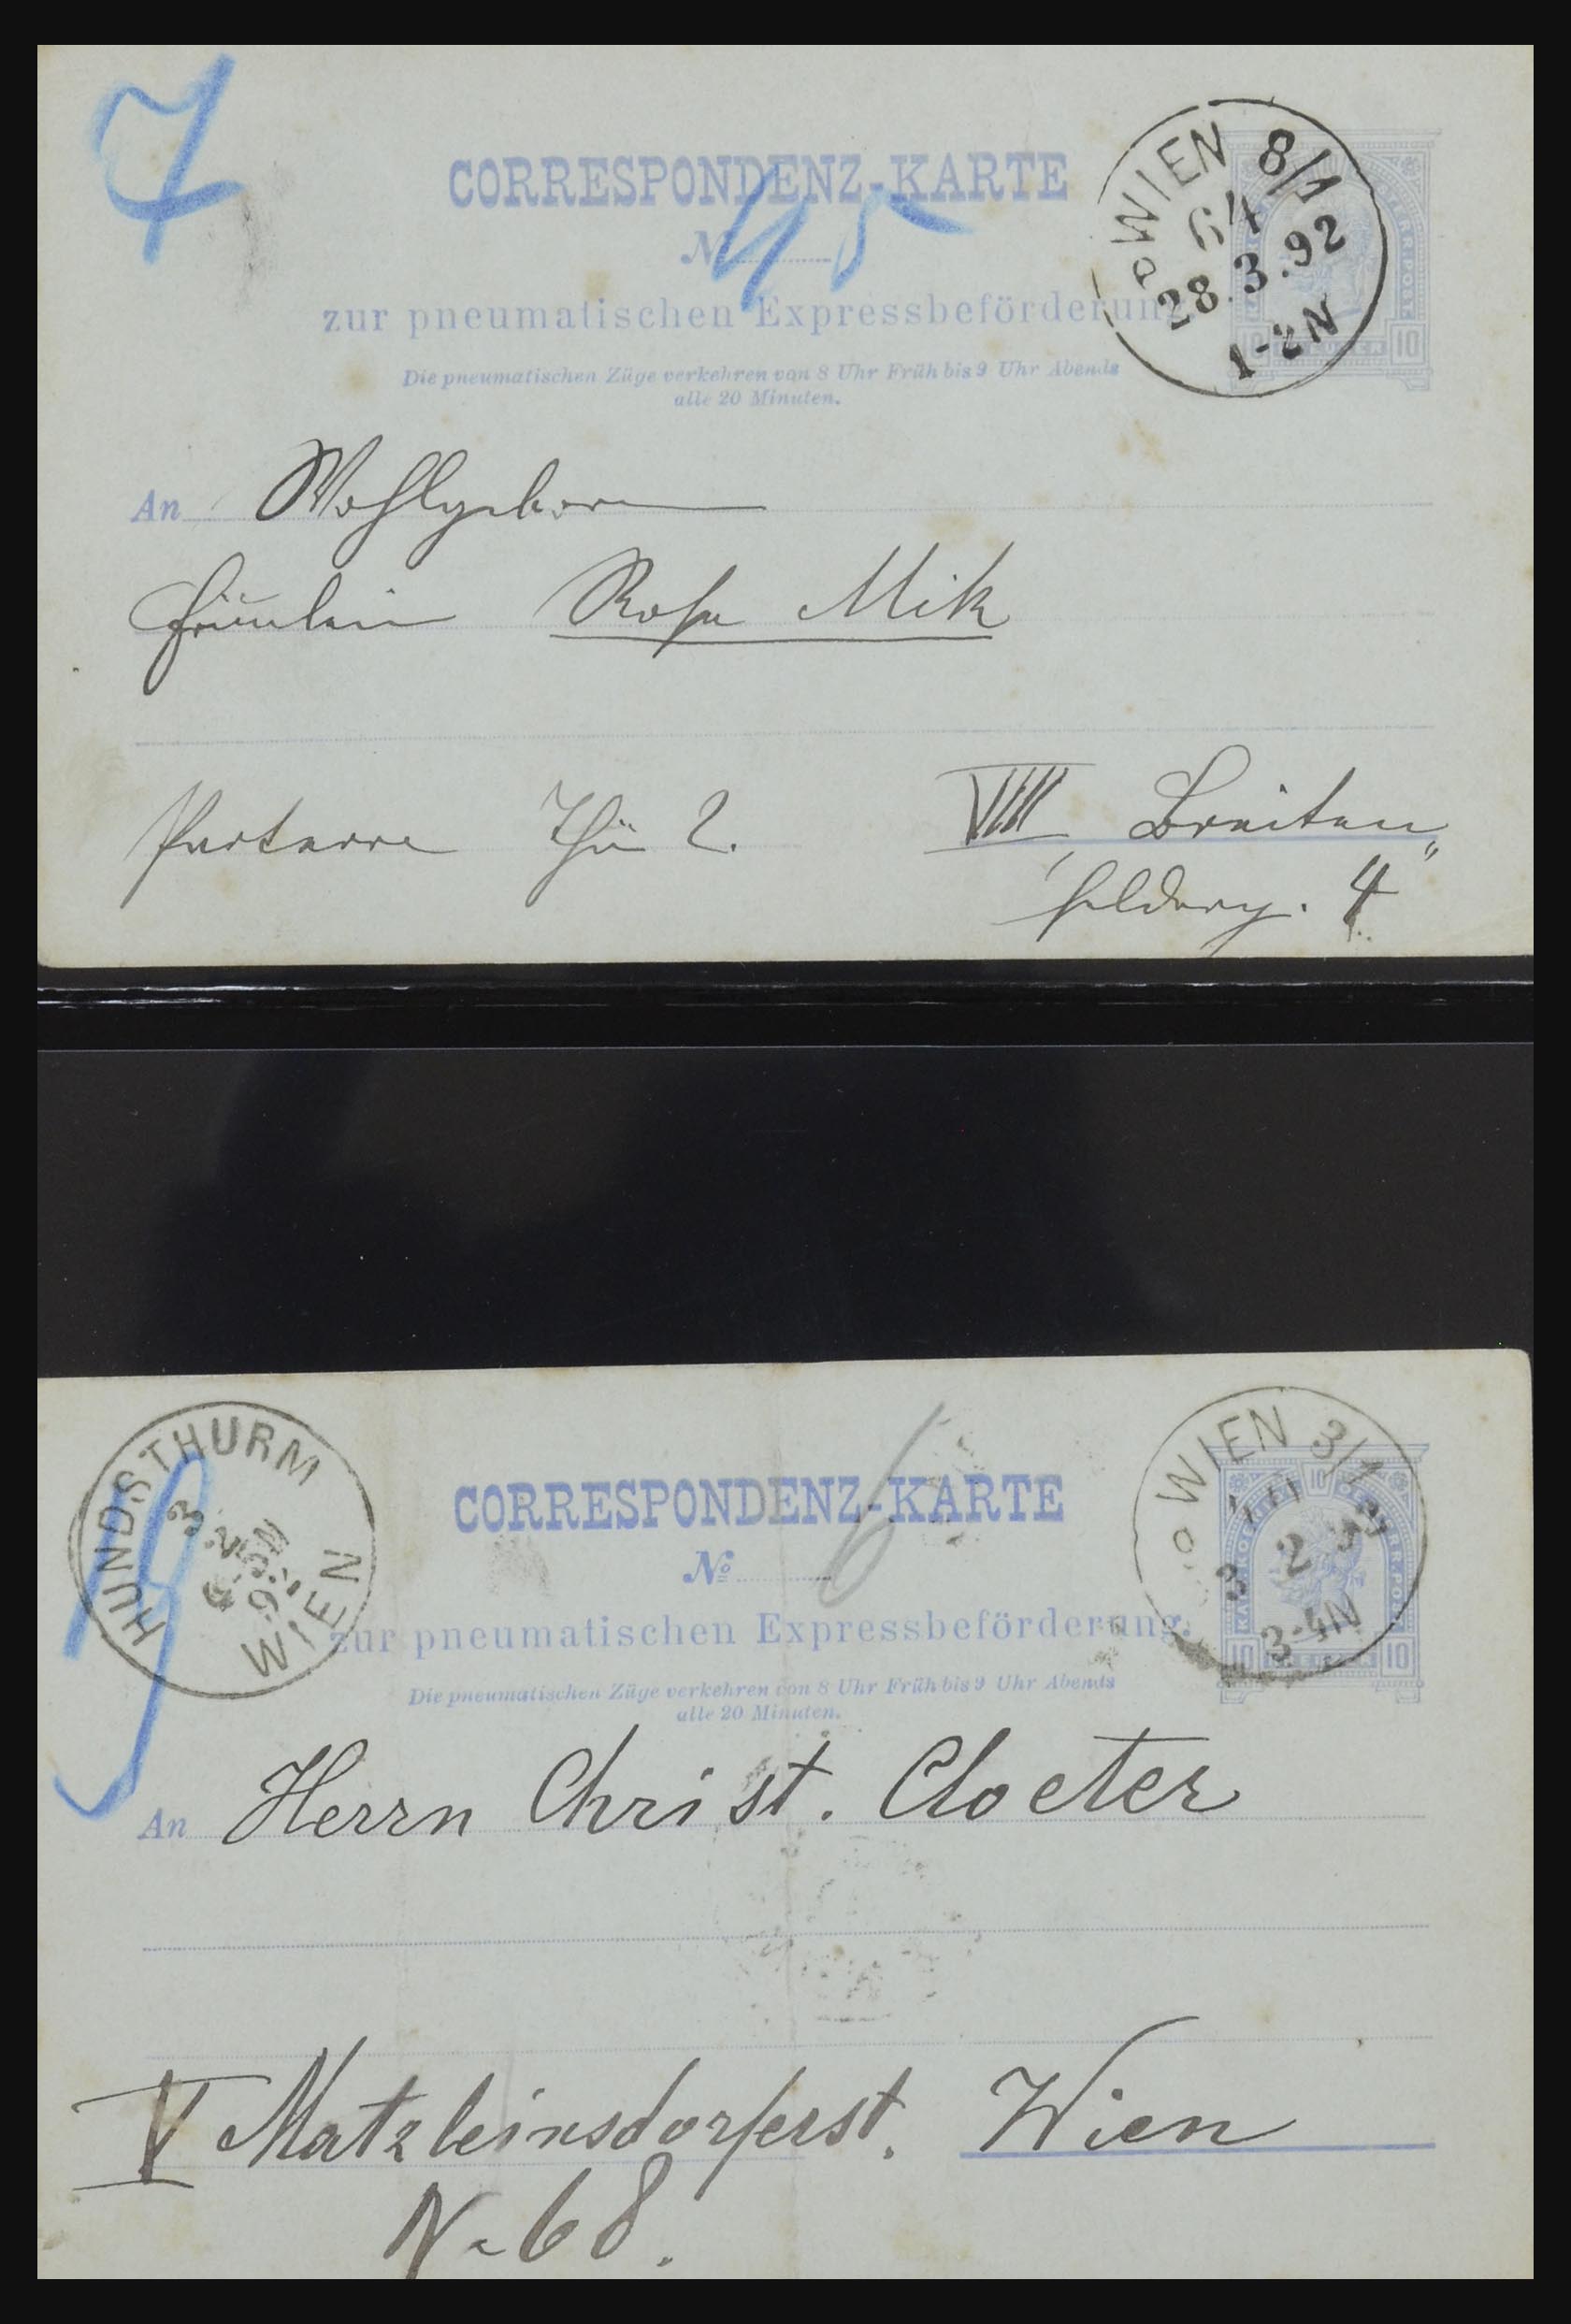 7
CORRESPONDENZ-KARTE
No 45
zur pneumatischen Expressbeförderung.
Die pneumatischen Züge verkehren von 8 Uhr Früh bis 9 Uhr Abends
alle 20 Minuten.
WIEN 8/1
64
28.3.92
1-2N
10 10
An Wohlgeboren
Fräulein Rosa Mik
Parterre Thür 2.
VIII Breiten„
felderg. 4
HUNDSTHURM
WIEN
CORRESPONDENZ-KARTE
No 6
zur pneumatischen Expressbeförderung.
Die pneumatischen Züge verkehren von 8 Uhr Früh bis 9 Uhr Abends
alle 20 Minuten.
WIEN 3/1
3 2 93
3-4N
10
10 KREUZER 10
An Herrn Christ. Cloeter
V Matzleinsdorferst. Wien
N= 68.